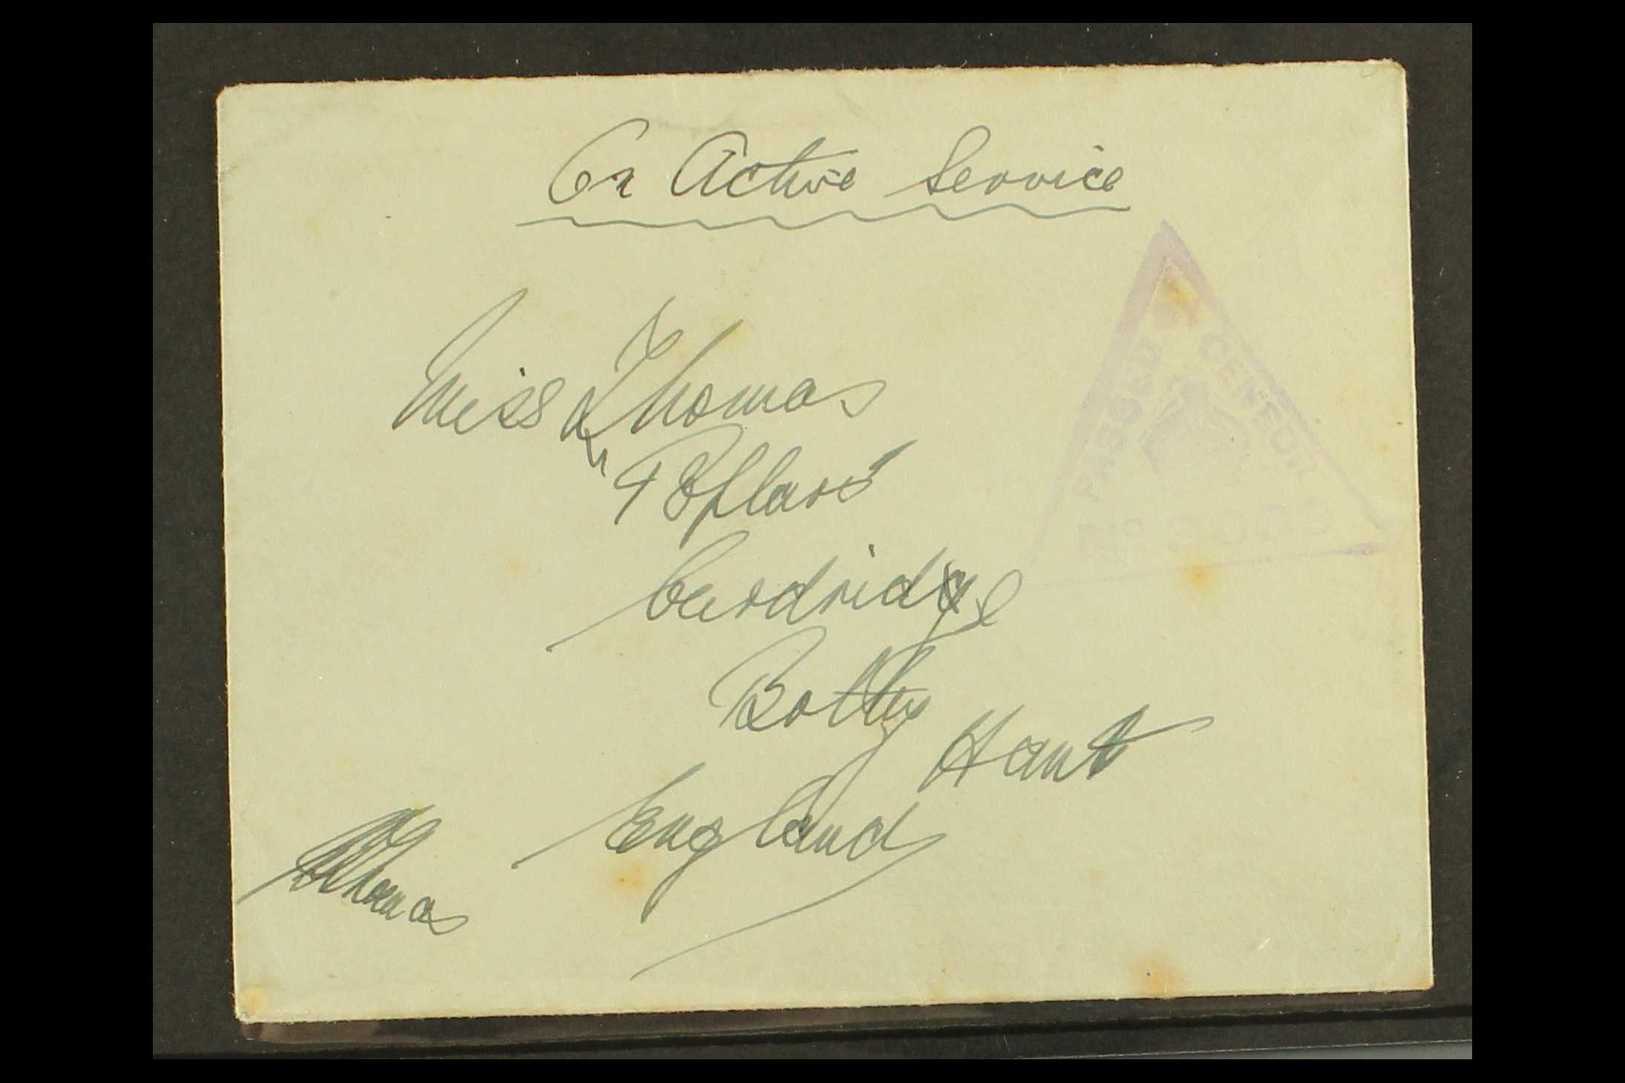 On Active Service
Miss Thomas
"Poplars"
Curdridge
Botley
Hants
England
Thomas
PASSED CENSOR
No